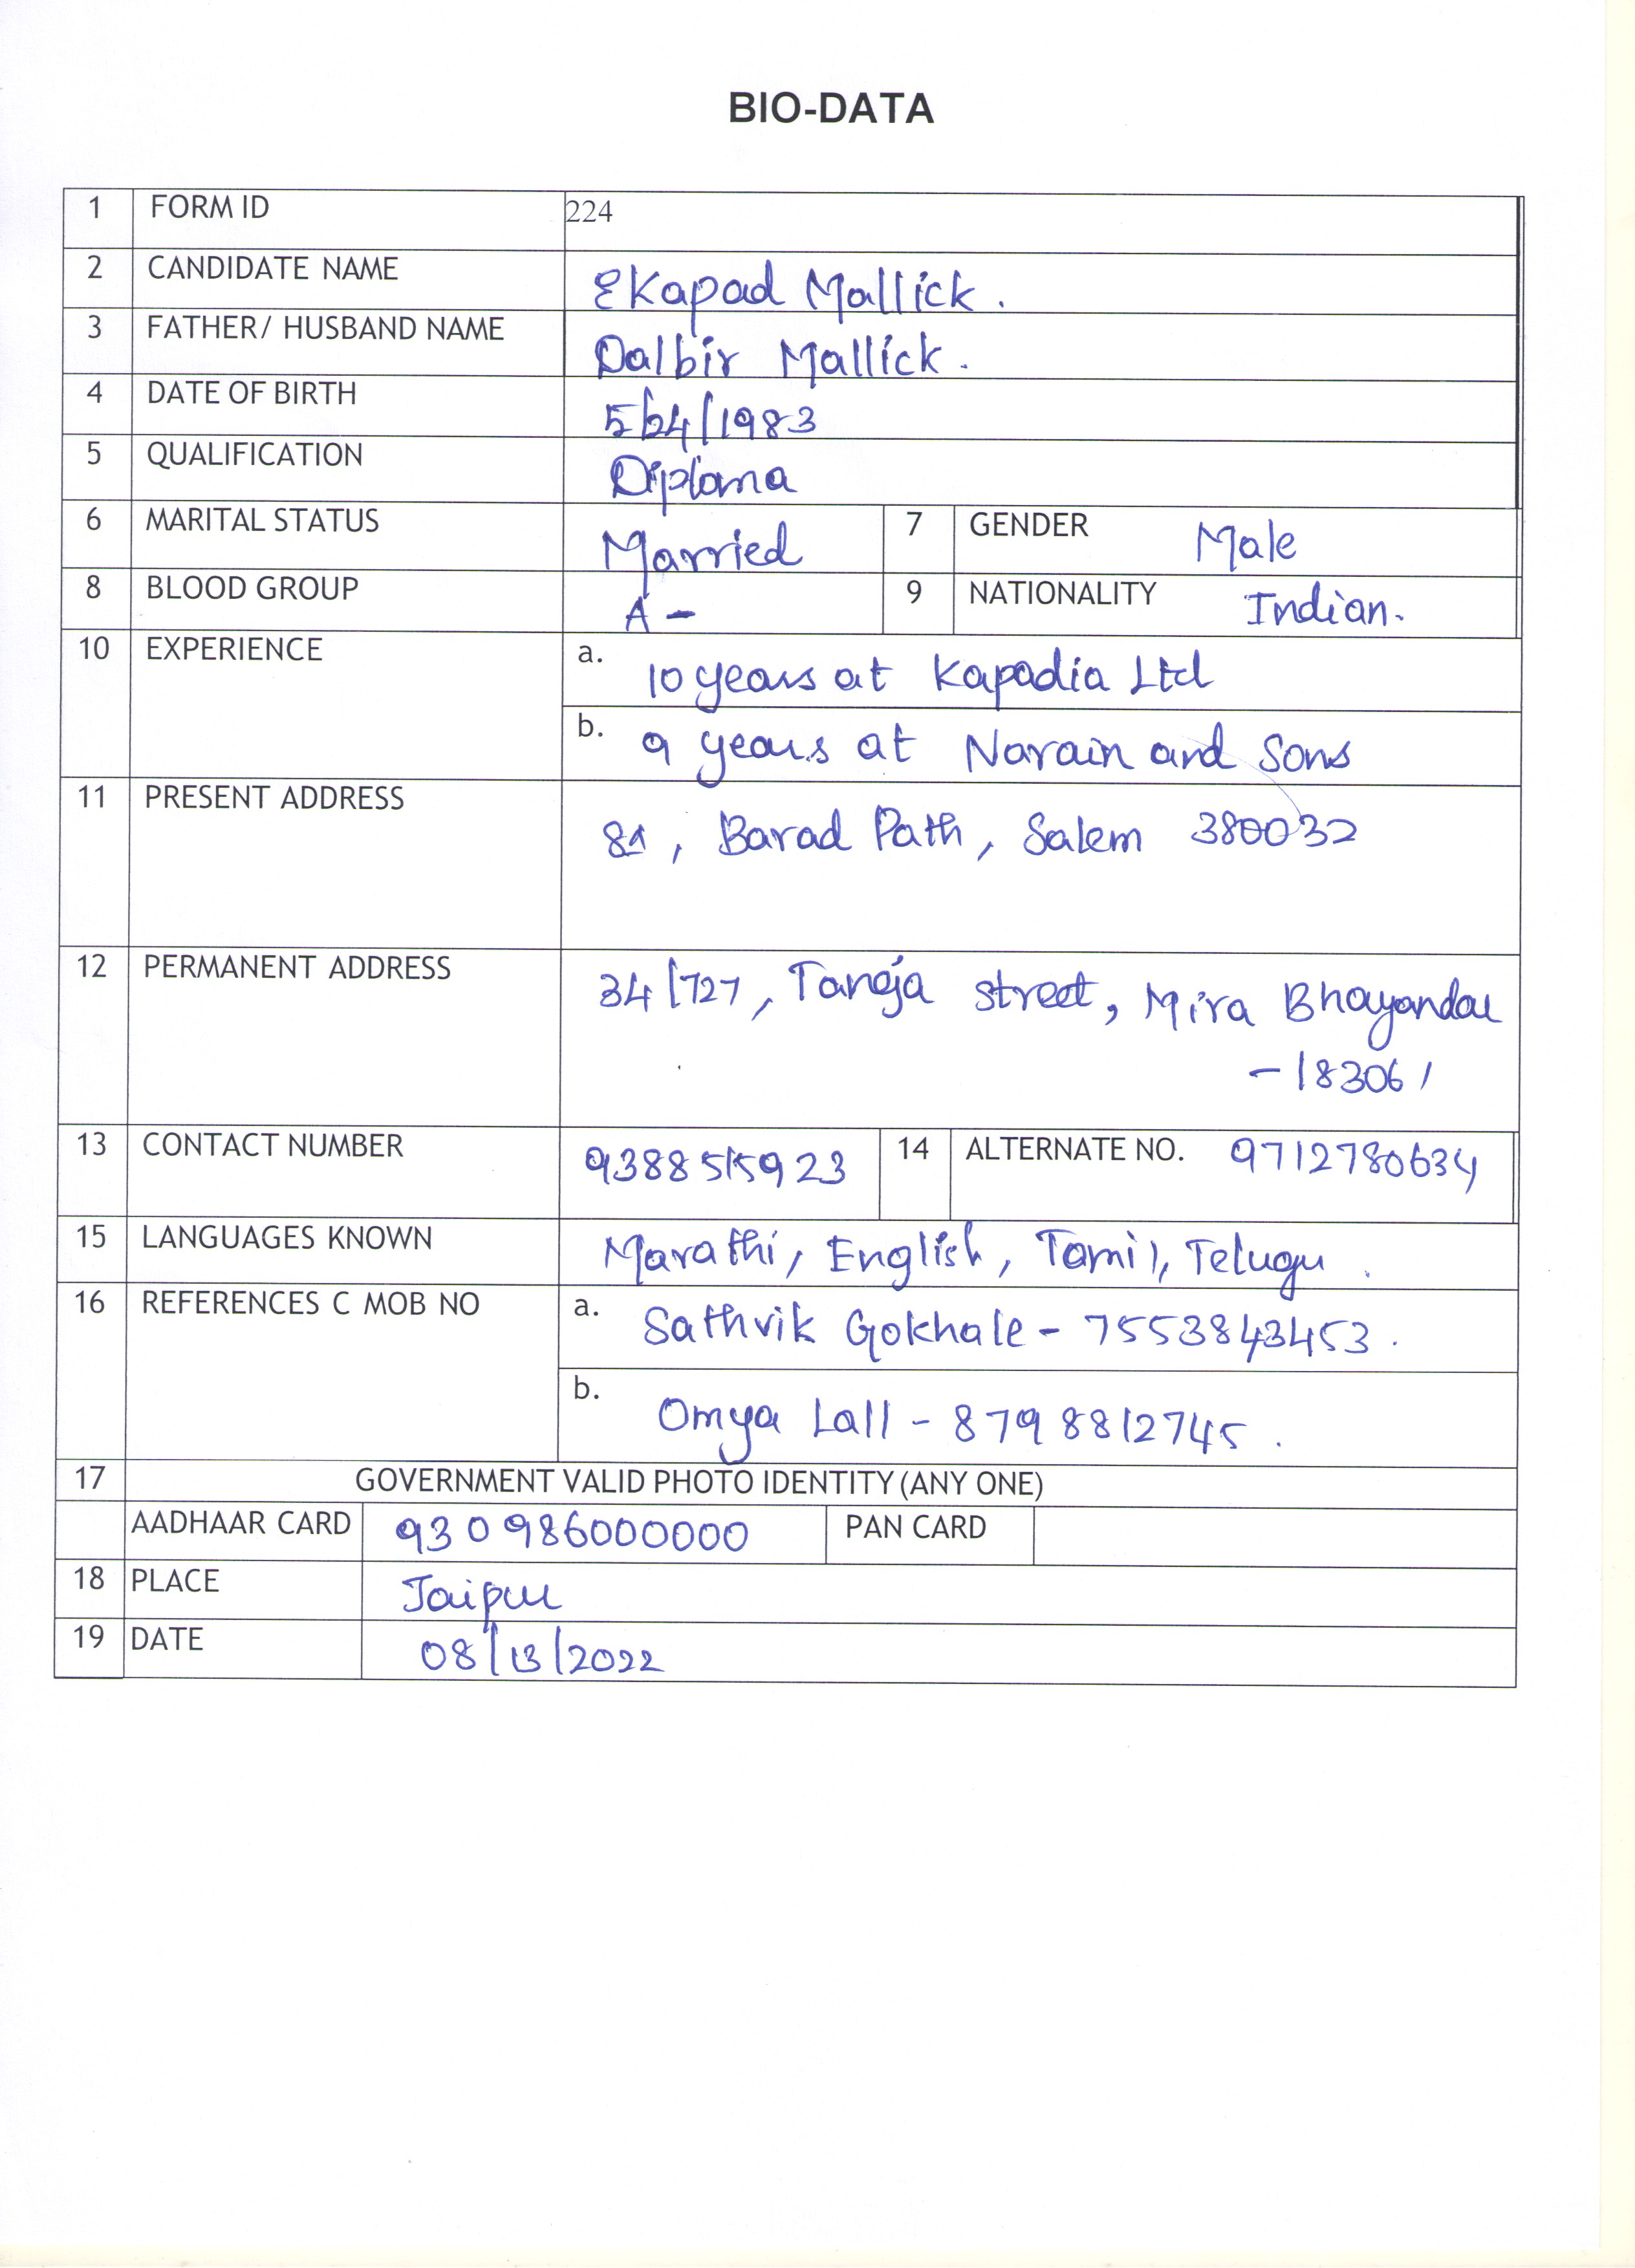 BIO-DATA
1 FORM ID 224
2 CANDIDATE NAME Ekapad Mallick.
3 FATHER/ HUSBAND NAME Dalbir Mallick.
4 DATE OF BIRTH 5/24/1983
5 QUALIFICATION Diploma
6 MARITAL STATUS Married 7 GENDER Male
8 BLOOD GROUP A - 9 NATIONALITY Indian.
10 EXPERIENCE a. 10 years at Kapadia Ltd
b. 9 years at Narain and Sons
11 PRESENT ADDRESS
81, Barad Path, Salem 380032
12 PERMANENT ADDRESS 34/727, Taneja street, Mira Bhayandar
- 183061
13 CONTACT NUMBER 9388515923 14 ALTERNATE NO. 9712780634
15 LANGUAGES KNOWN Marathi, English, Tamil, Telugu.
16 REFERENCES C MOB NO a. Sathvik Gokhale - 7553843453.
b. Omya Lall - 8798812745.
17 GOVERNMENT VALID PHOTO IDENTITY (ANY ONE)
AADHAAR CARD 930986000000 PAN CARD
18 PLACE Jaipur
19 DATE 08/13/2022